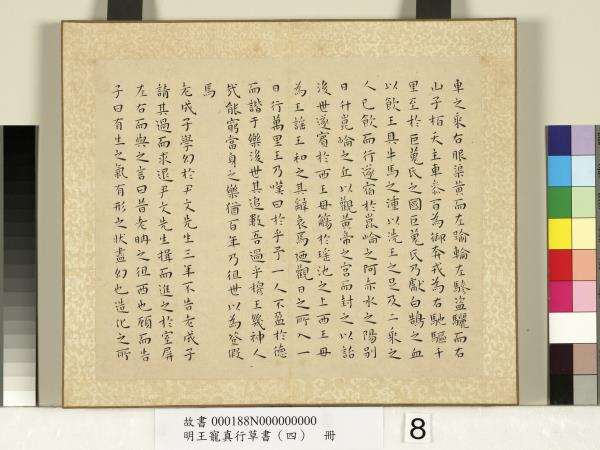 車之乘右服渠黃而左踰輪左驂盜驪而右
山子栢夭主車參百為御奔戎為右馳驅千
里至於巨蒐氏之國巨蒐氏乃獻白鵠之血
以飲王具牛馬之湩以洗王之足及二乘之
人已飲而行遂宿於崑崙之阿赤水之陽別
日升崑崙之丘以觀黃帝之宮而封之以詒
後世遂賓於西王母觴於瑤池之上西王母
為王謠王和之其辭哀焉迺觀日之所入一
日行萬里王乃嘆曰於乎予一人不盈於德
而諧于樂後世其追數吾過乎穆王幾神人
哉能窮當身之樂猶百年乃徂世以為登假
焉
老成子學幻於尹文先生三年不告老成子
請其過而求退尹文先生揖而進之於室屏
左右而與之言曰昔老聃之徂西也顧而告
予曰有生之氣有形之狀盡幻也造化之所
故書 000188N000000000
明王寵真行草書（四） 冊
8